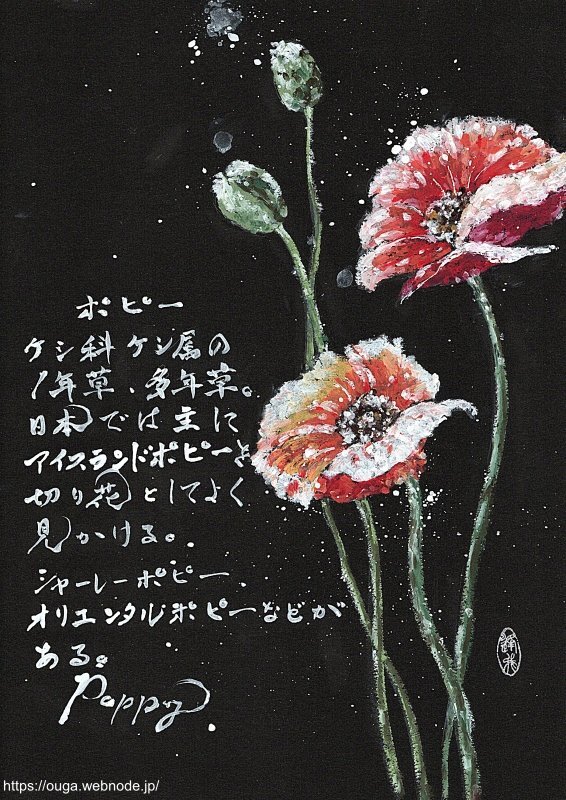 ポピー
ケシ科ケシ属の
1年草、多年草。
日本では主に
アイスランドポピーを
切り花としてよく
見かける。
シャーレーポピー、
オリエンタルポピーなどが
ある。
Poppy.
https://ouga.webnode.jp/